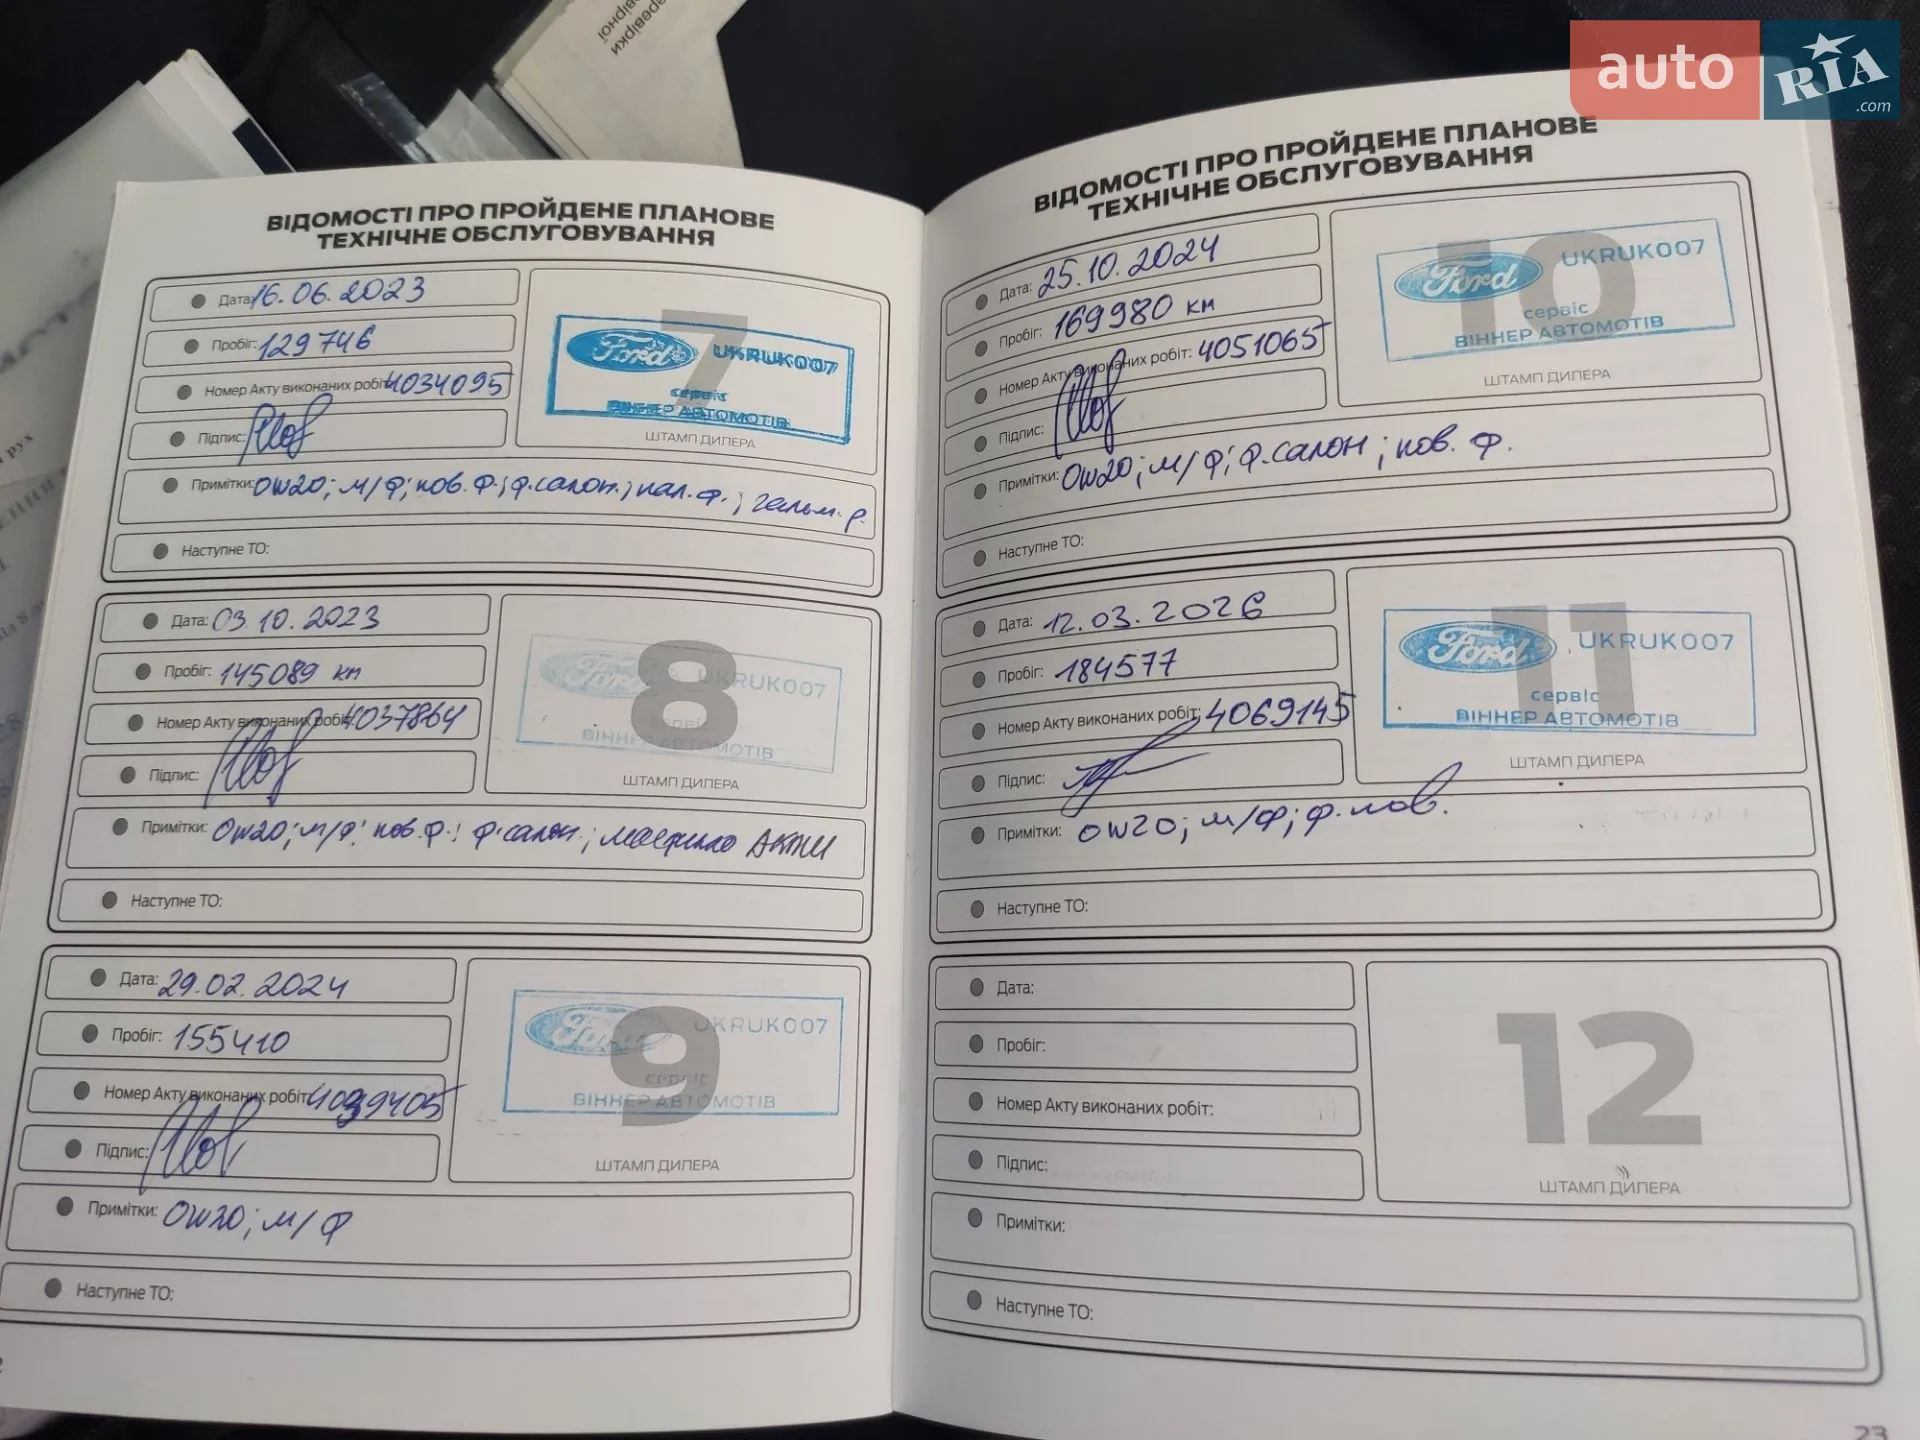 еревірки
вірної
auto RIA .com
ВІДОМОСТІ ПРО ПРОЙДЕНЕ ПЛАНОВЕ
ТЕХНІЧНЕ ОБСЛУГОВУВАННЯ
Дата: 16.06.2023
Пробіг: 129746
Номер Акту виконаних робіт: 4034095
Підпис:
7
Ford UKRUK007
сервіс
ВІННЕР АВТОМОТІВ
ШТАМП ДИЛЕРА
Примітки: 0w20; м/ф; пов. ф.; ф.салон.; пал. ф.; гальм. р.
Наступне ТО:
Дата: 03.10.2023
Пробіг: 145089 км
Номер Акту виконаних робіт: 4037864
Підпис:
8
Ford UKRUK007
сервіс
ВІННЕР АВТОМОТІВ
ШТАМП ДИЛЕРА
Примітки: 0w20; м/ф; пов. ф.; ф.салон.; АКПП
Наступне ТО:
Дата: 29.02.2024
Пробіг: 155410
Номер Акту виконаних робіт: 4039405
Підпис:
9
Ford UKRUK007
сервіс
ВІННЕР АВТОМОТІВ
ШТАМП ДИЛЕРА
Примітки: 0w20; м/ф
Наступне ТО:
ВІДОМОСТІ ПРО ПРОЙДЕНЕ ПЛАНОВЕ
ТЕХНІЧНЕ ОБСЛУГОВУВАННЯ
Дата: 25.10.2024
Пробіг: 169980 км
Номер Акту виконаних робіт: 4051065
Підпис:
10
Ford UKRUK007
сервіс
ВІННЕР АВТОМОТІВ
ШТАМП ДИЛЕРА
Примітки: 0w20; м/ф; ф.салон; пов. ф.
Наступне ТО:
Дата: 12.03.2026
Пробіг: 184577
Номер Акту виконаних робіт: 4069145
Підпис:
11
Ford UKRUK007
сервіс
ВІННЕР АВТОМОТІВ
ШТАМП ДИЛЕРА
Примітки: 0w20; м/ф; ф.пов.
Наступне ТО:
Дата:
Пробіг:
Номер Акту виконаних робіт:
Підпис:
12
ШТАМП ДИЛЕРА
Примітки:
Наступне ТО:
23